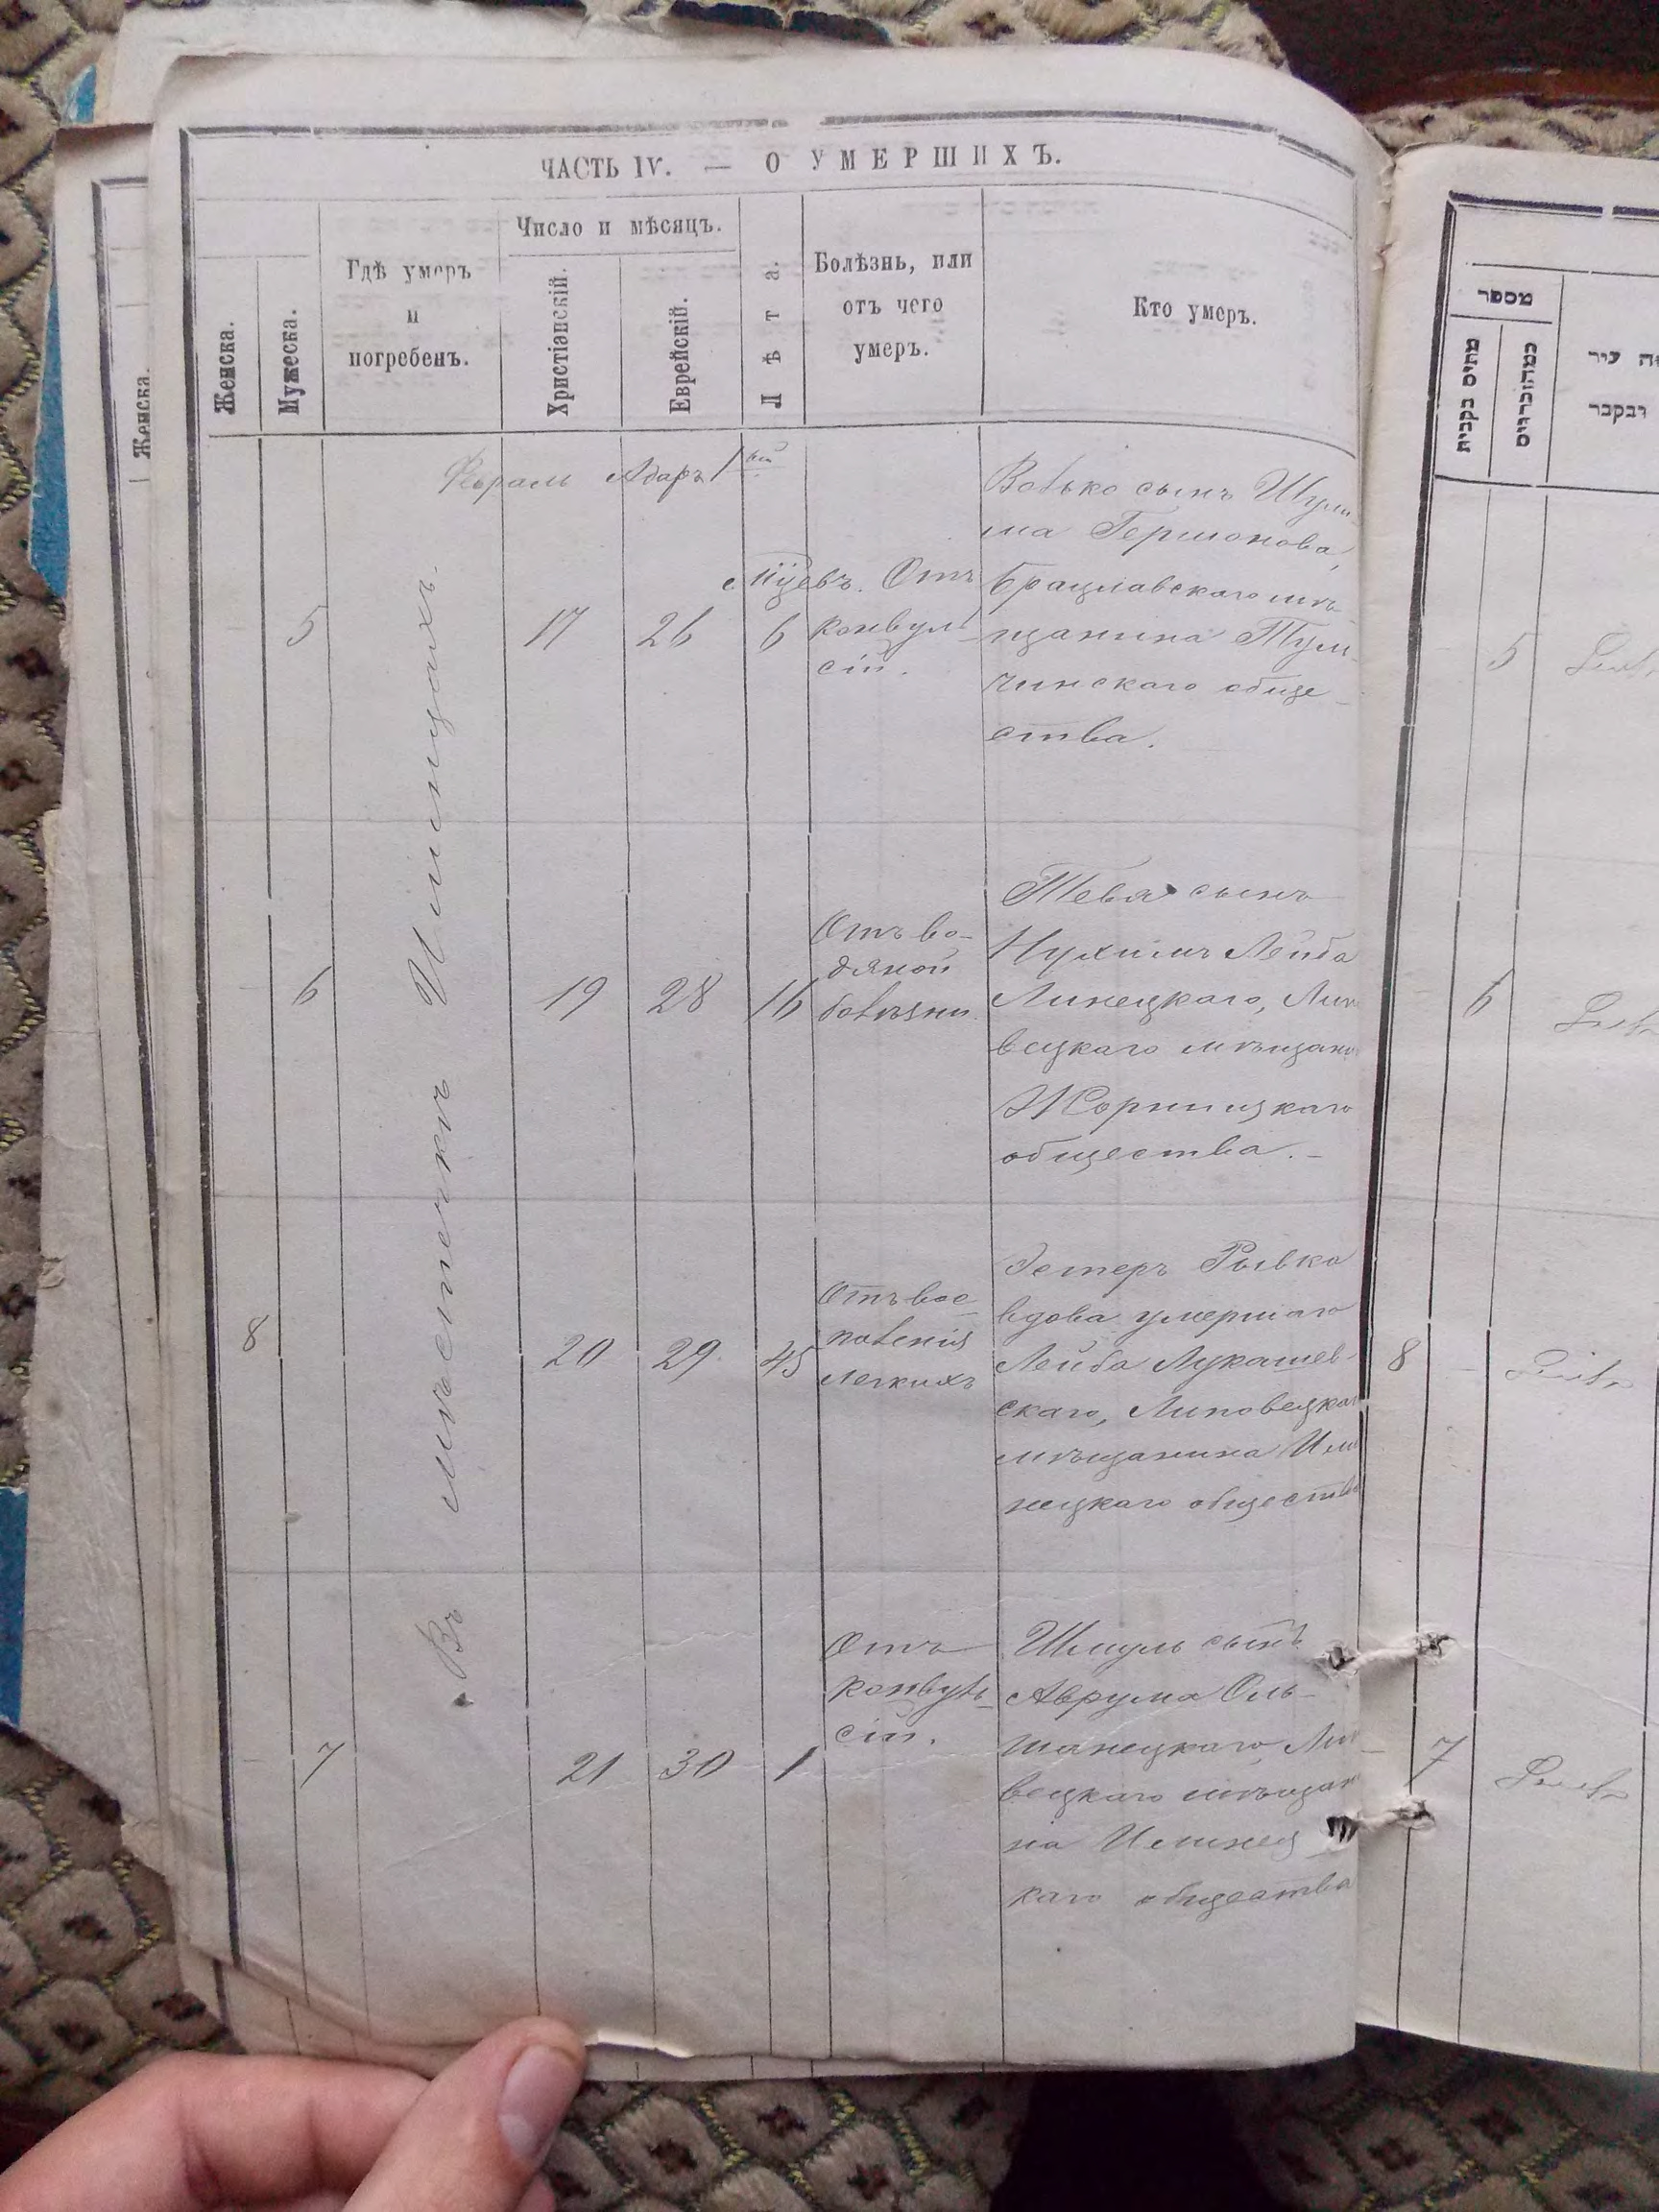 ЧАСТЬ IV. — О УМЕРШИХЪ.
Женска.
Мужеска.
Гдѣ умеръ
и
погребенъ.
Число и мѣсяцъ.
Христіанскій.
Еврейскій.
Лѣта.
Болѣзнь, или
отъ чего
умеръ.
Кто умеръ.
Февраль Адаръ 1ый
Въ мѣстечкѣ Илинцахъ.
5
17
26
6
мѣсяцевъ. Отъ
конвуль
сій.
Волько сынъ Шу
ма Гершонова,
Брацлавскаго мѣ
щанина Туль
чинскаго обще
ства.
6
19
28
16
Отъ во-
дяной
болѣзни.
Тевя сынъ
Нухимъ Лейба
Линецкаго, Липо
вецкаго мѣщани
Жорнищкаго
общества. -
8
20
29
45
Отъ вос
поленія
легкихъ
Эстеръ Рывка
вдова умершаго
Лейба Лукашев-
скаго, Липовецкаго
мѣщанина Или
нецкаго общества
7
21
30
1
Отъ
конвуль
сій.
Шмуль сынъ
Аврума Оль-
шанецкаго, Липо
вецкаго мѣщани
на Илинец
каго общества
Женска.
מספר
מתים נקבות
ובקבר
5
6
8
7